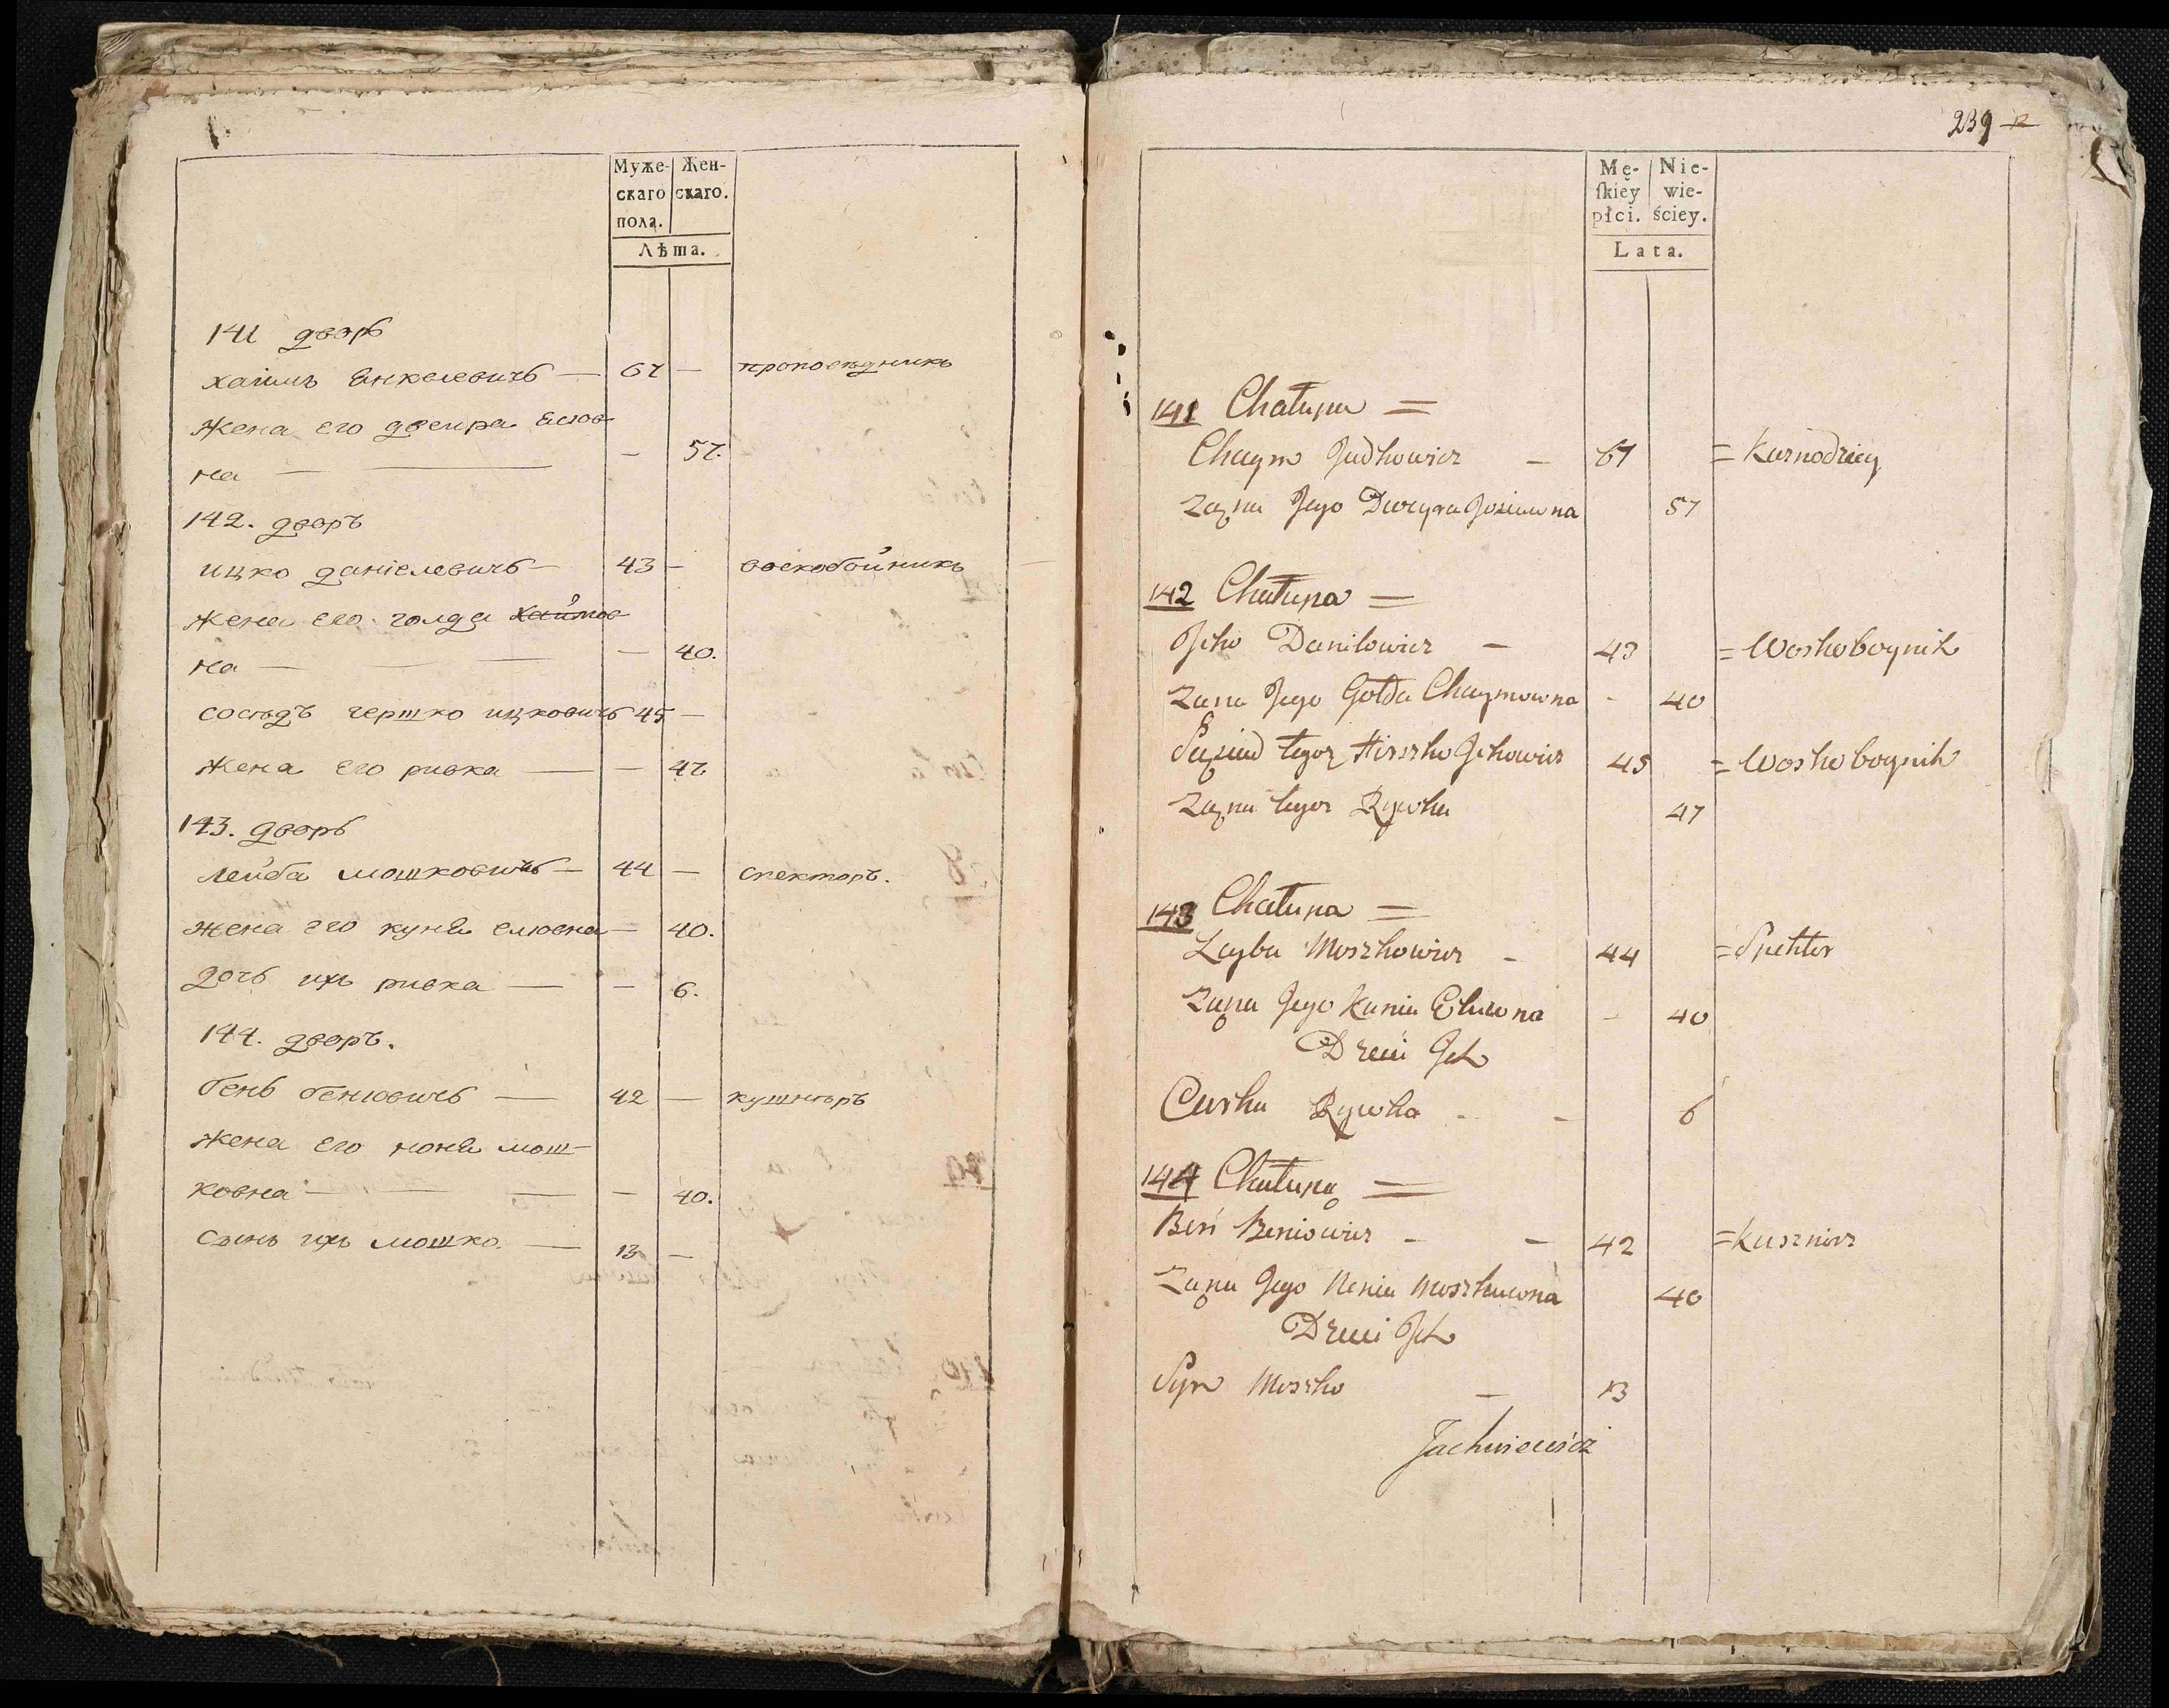 Муже-
скаго
пола.
Жен-
скаго.
Лѣта.
141 дворъ
хаимъ Янкелевичъ — 67 — проповѣдникъ
жена его двейра Есіов-
на — — — 57.
142. дворъ
ицко даніелевичъ — 43 — воскобойникъ
жена его голда хаймов-
на — — — 40.
сосѣдъ гершко ицковичъ 45 —
жена его ривка — — 47
143. дворъ
лейба мошковичъ — 44 — спекторъ.
жена его куня елювна — 40.
дочь ихъ ривка — — 6.
144. дворъ.
бень бенювичъ — 42 — кушнѣръ
жена его неня мош-
ковна — — — 40.
сынъ ихъ мошко. — 13 —
239
Mę-
ſkiey
płci.
Nie-
wie-
ściey.
Lata.
141 Chałupa =
Chaym Judkowicz — 67 = Kaznodziey
Zona Jego Dweyra Josiowna 57
142 Chałupa =
Jcko Daniłowicz — 43 = Woskoboynik
Zona Jego Gołda Chaymowna - 40
Sąsiad tegoz Hirszko Jckowicz 45 = Woskoboynik
Zona tegoz Rywka 47
143 Chałupa =
Leyba Moszkowicz - 44 = Spektor
Zona Jego Kunia Elowna - 40
Dzieci Jch
Curka Rywka - - 6
144 Chałupa =
Beń Beniowicz - - 42 = Kusznierz
Zona Jego Nenia Moszkowna 40
Dzieci Jch
Syn Moszko — 13
Jachniewicz